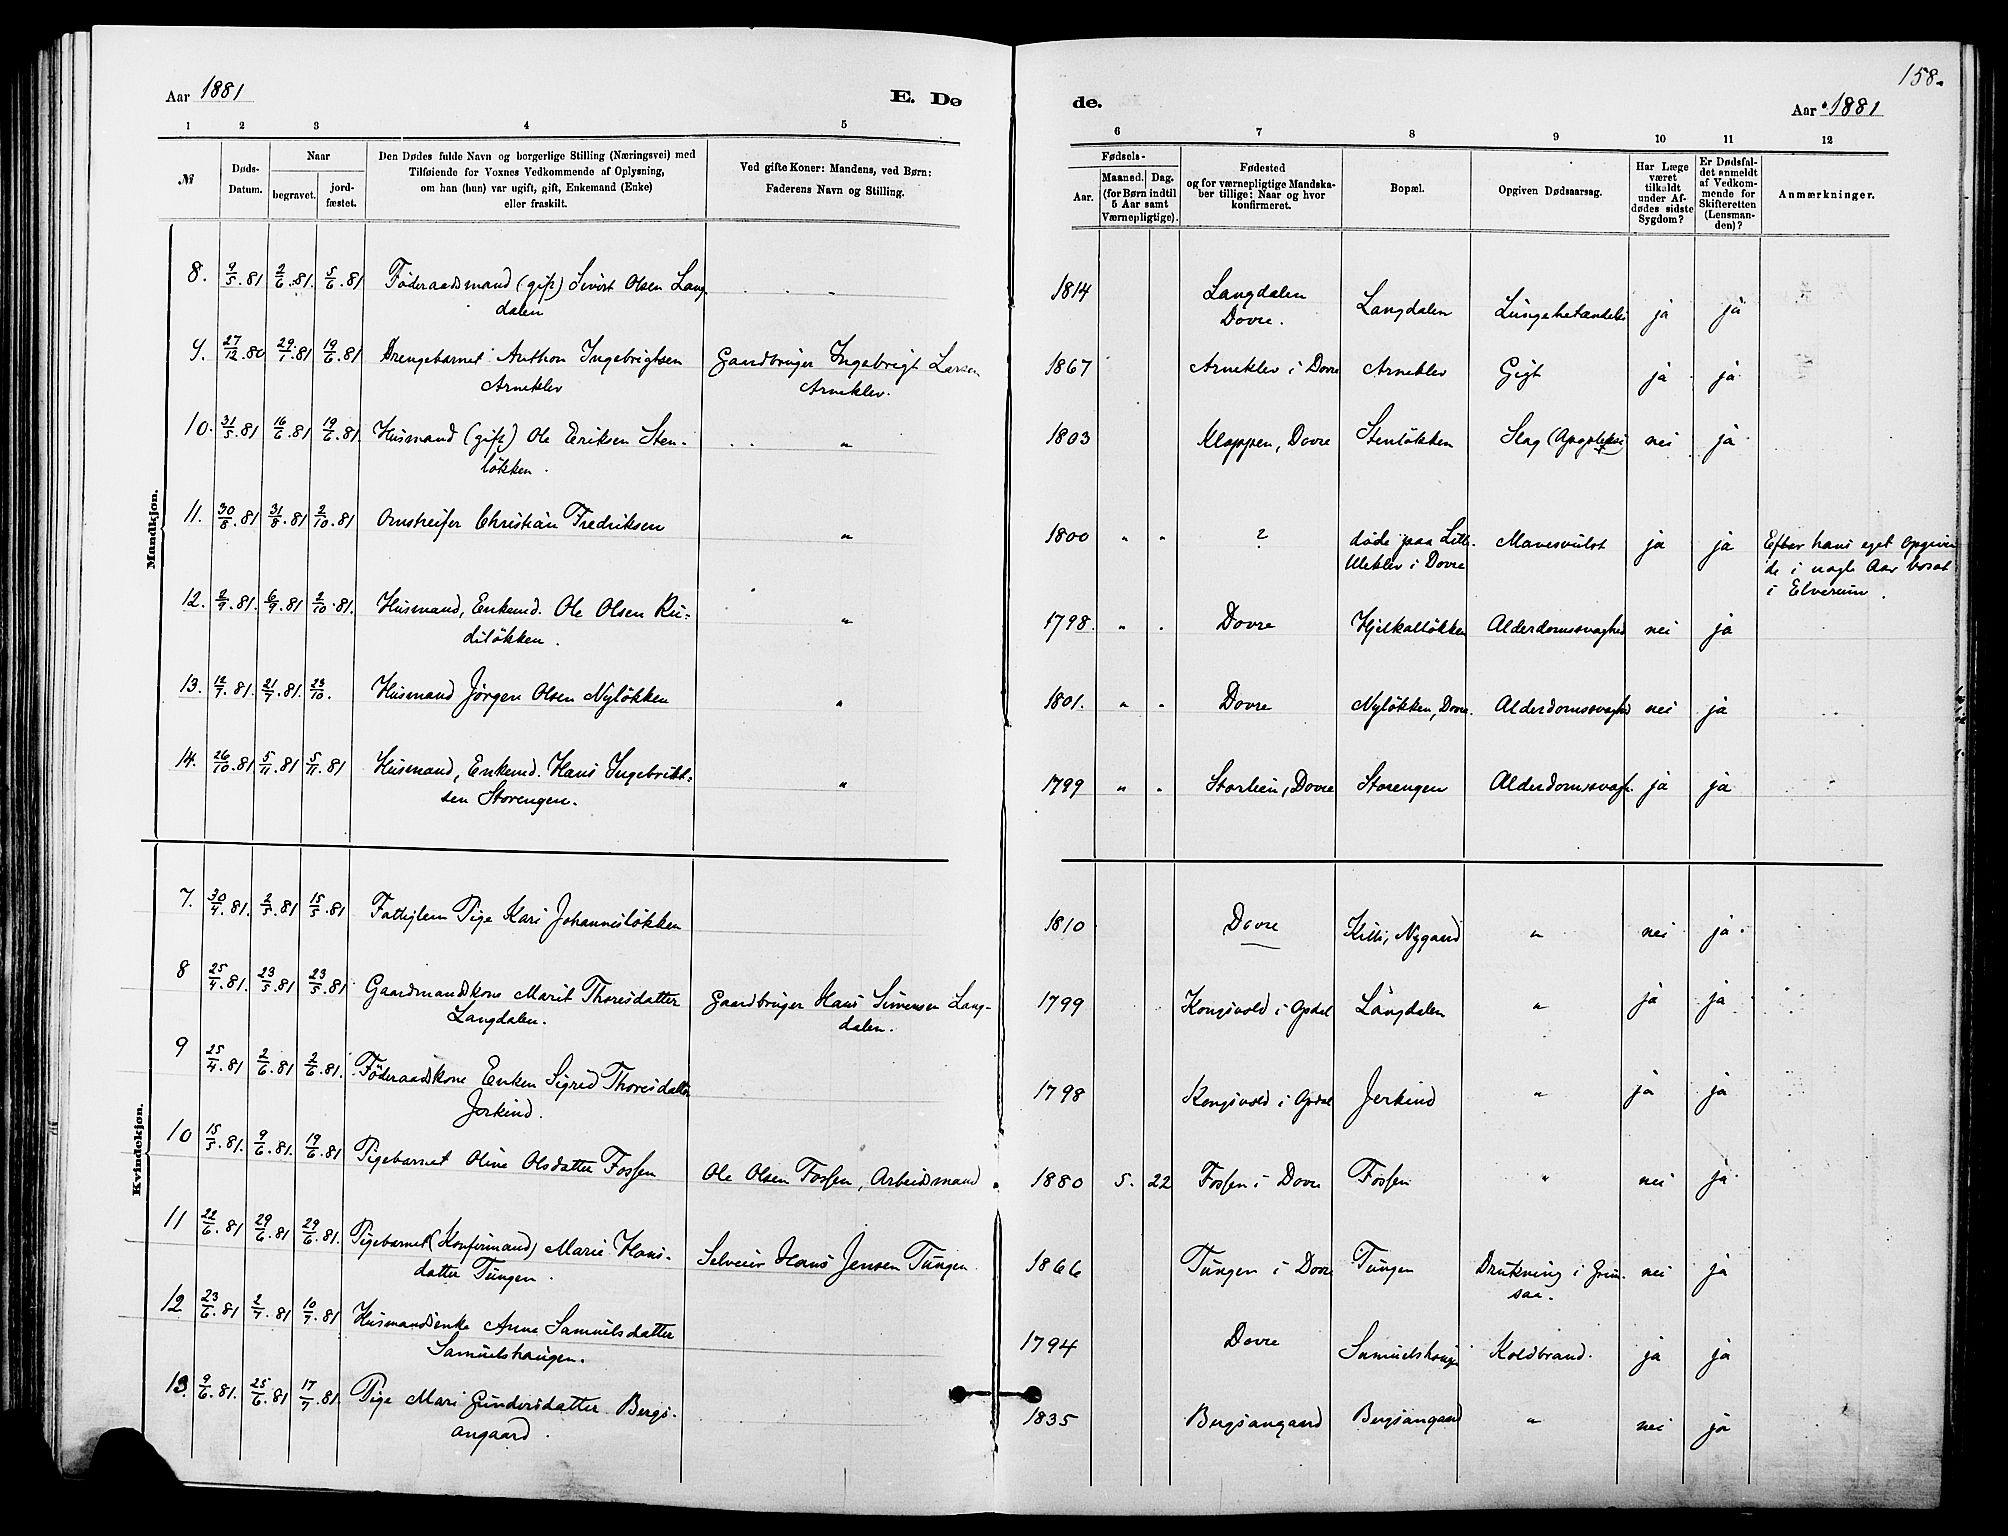 Aar 1881
E. Dø
de.
158.
Aar 1881
1 2 3 4 5
6 7 8 9 10 11 12
№
Døds-
Datum.
Naar
begravet.
jord-
fæstet.
Den Dødes fulde Navn og borgerlige Stilling (Næringsvei) med
Tilføiende for Voxnes Vedkommende af Oplysning,
om han (hun) var ugift, gift, Enkemand (Enke)
eller fraskilt.
Ved gifte Koner: Mandens, ved Børn:
Faderens Navn og Stilling.
Fødsels-
Aar.
Maaned. Dag.
(for Børn indtil
5 Aar samt
Værnepligtige).
Fødested
og for værnepligtige Mandska-
ber tillige: Naar og hvor
konfirmeret.
Bopæl.
Opgiven Dødsaarsag.
Har Læge
været
tilkaldt
under Af-
dødes sidste
Sygdom?
Er Dødsfal-
det anmeldt
af Vedkom-
mende for
Skifteretten
(Lensman-
den)?
Anmærkninger.
Mandkjøn.
8. 9/5.81 2/6.81 5/6.81 Föderaadsmand (gift) Sivert Olsen Lang- 1814 Langdalen Langdalen Lungebetændelse ja ja
dalen Dovre.
9. 27/12.80 29/1.81 19/6.81 Drengebarnet Anthon Ingebrigtsen Gaardbruger Ingebrigt Larsen 1867 Arneklev i Dovre Arneklev Gigt ja ja
Arneklev Arneklev.
10. 31/5.81 16/6.81 19/6.81 Husmand (gift) Ole Eriksen Sten- " 1803 Kloppen, Dovre Stenløkken Slag (Apoplexi) nei ja
løkken.
11. 30/8.81 31/8.81 2/10.81 Omstreifer Christian Fredriksen " 1800 " " ? døde paa Litl- Mavesvulst ja ja Efter hans eget Opgiven-
Uleklev i Dovre de i nogle Aar bosat
i Elverum.
12. 2/9.81. 6/9.81 2/10.81. Husmand, Enkemd. Ole Olsen Ru- " 1798. " " Dovre Hjelkalløkken Alderdomssvaghed nei ja
diløkken.
13. 12/7.81. 21/7.81. 23/10. Husmand Jørgen Olsen Nyløkken " 1801. " " Dovre Nyløkken, Dovre. Alderdomssvaghed nei ja
14. 26/10.81 5/11.81 5/11.81 Husmand, Enkemd. Hans Ingebrikt- " 1799 " " Storlien, Dovre Storengen Alderdomssvagh. ja ja
sen Storengen.
Kvindekjøn.
7. 30/4.81. 2/5.81 15/5.81 Fattiglem Pige Kari Johannesløkken 1810 Dovre Killi, Nygaard " nei ja
8 25/4.81. 23/5.81 23/5.81 Gaardmandskone Marit Thoresdatter Gaardbruger Hans Simensen Lang- 1799 Kongsvold i Opdal Langdalen " ja ja
Langdalen. dalen.
9 25/4.81 2/6.81 2/6.81. Föderaadskone Enken Sigrid Thoresdatter 1798 Kongsvold i Opdal Jerkind " ja ja
Jerkind.
10 15/5.81. 9/6.81. 19/6.81 Pigebarnet Oline Olsdatter Fossen Ole Olsen Fossen, Arbeidsmand 1880 5. 22 Fossen i Dovre Fossen " nei ja
11 22/6.81 29/6.81 29/6.81. Pigebarnet (Konfirmand) Marie Hans- Selveier Hans Jensen Tungen 1866 Tungen i Dovre Tungen Drukning i Grim- nei ja
datter Tungen. saa.
12 23/6.81 2/7.81 10/7.81 Husmandsenke Anne Samuelsdatter 1794 Dovre Samuelshaugen Koldbrand. ja ja
Samuelshaugen.
13. 9/6.81. 25/6.81 17/7.81. Pige Mari Gundersdatter Bergs- 1835 Bergsangaard Bergsangaard " nei ja
angaard.